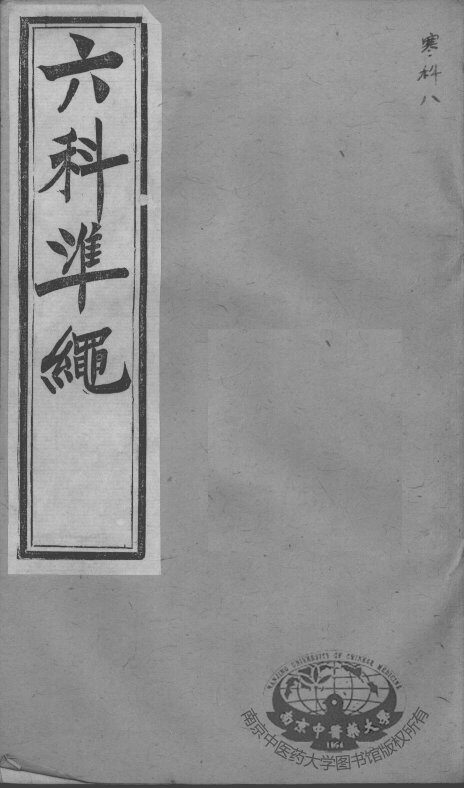 六科準繩
寒科八
NANJING UNIVERSITY OF CHINESE MEDICINE
南京中醫藥大學
1954
南京中医药大学图书馆版权所有